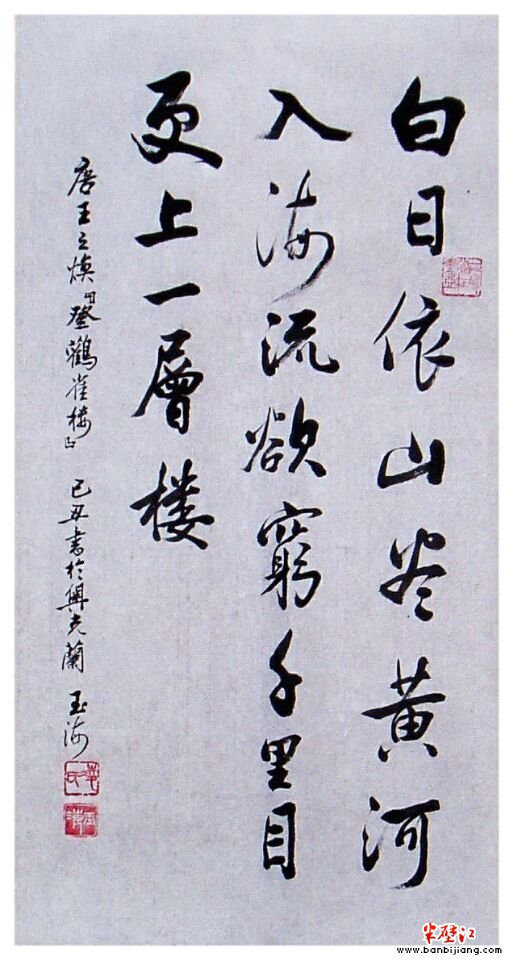 白日依山尽黄河
入海流欲窮千里目
更上一層楼
唐王之涣『登鸛雀楼』 己丑書於奥克蘭 玉海
半壁江
www.banbijiang.com